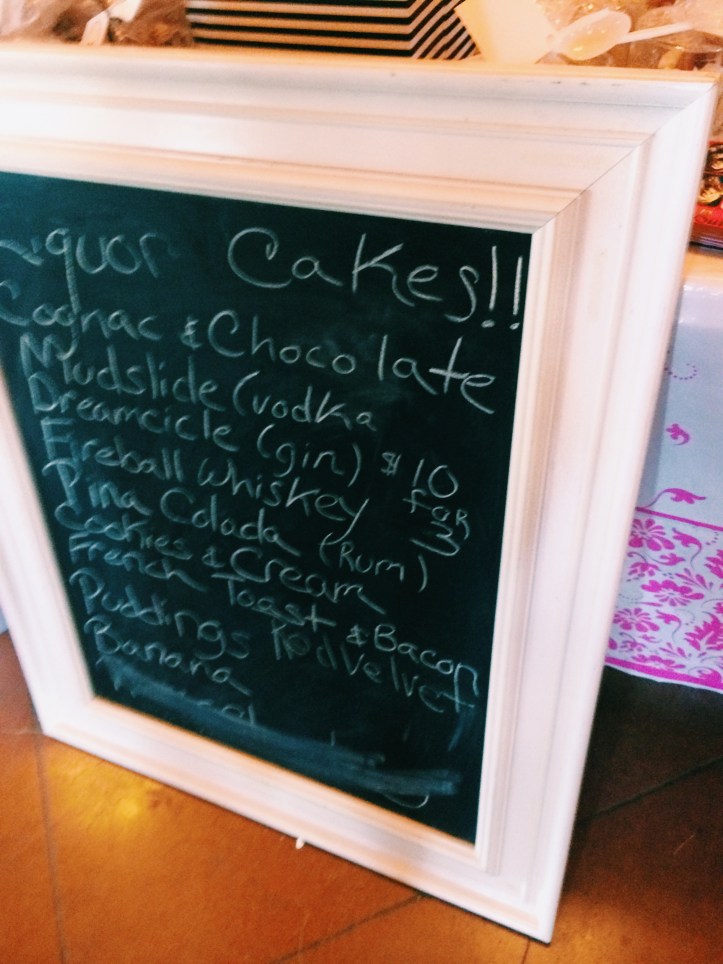 Liquor Cakes!!
Cognac & Chocolate
Mudslide (vodka
Dreamcicle (gin)
Fireball Whiskey
Pina Colada (Rum)
$10
FOR
3
Cookies & Cream
French Toast & Bacon
Puddings Red Velvet
Banana